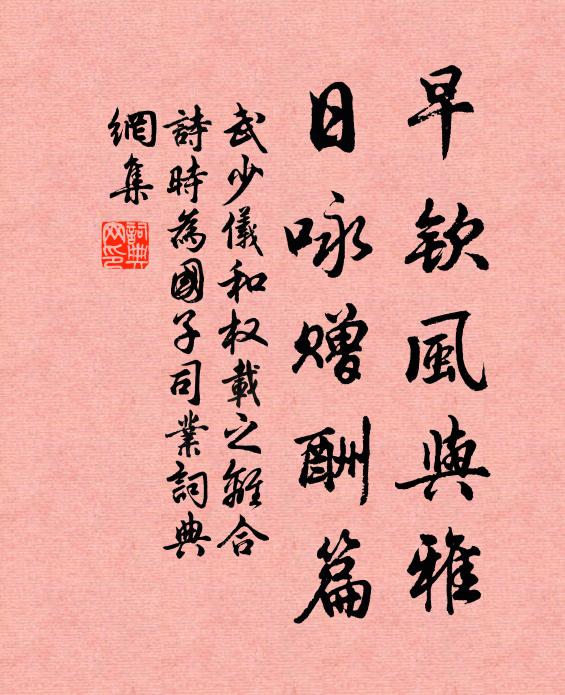 早欽風與雅
日咏贈酬篇
武少儀和权載之離合
詩時為國子司業詞典
網集
詞典網印